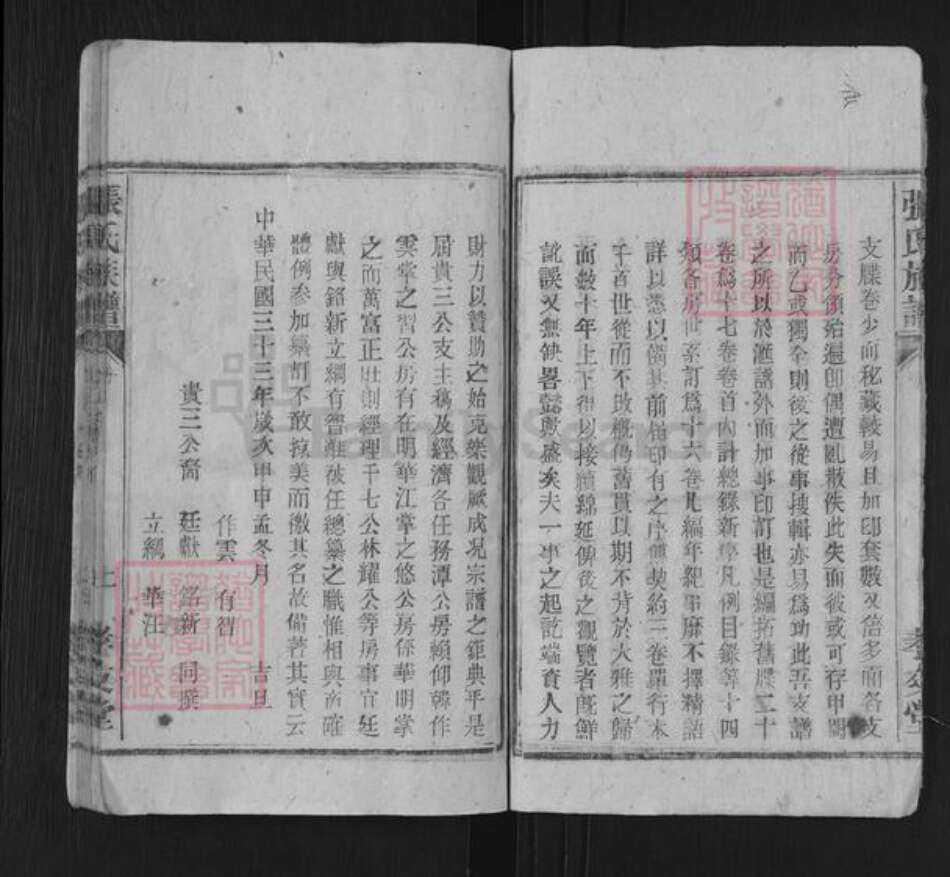 張氏族譜
支牒卷少而秘藏較易且加印套數又倍多而各支
房分領殆遍卽偶遭亂散佚此失而彼或可存甲闕
而乙或獨全則後之從事搜輯亦易爲功此吾支譜
之所以於滙譜外而加事印訂也是編拓舊牒二十
卷爲十七卷卷首內計總錄新序凡例目錄等十四
類各房世系訂爲十六卷凡編年紀事靡不擇精語
詳以悉以備其前編印有之序傳契約三卷單行本
千首世從而不改概仍舊貫以期不背於大雅之歸
而數十年上下得以接續綿延俾後之觀覽者旣鮮
訛誤又無缺畧懿歟盛矣夫一事之起訖端賴人力
財力以贊助之始克樂觀厥成况宗譜之鉅典乎是
屆貴三公支主稿及經濟各任務潭公房賴仰韓作
雲掌之習公房有在明華江掌之悠公房係華明掌
之而萬富正財則經理千七公林耀公等房事宜廷
獻與銘新立綱有智雖被任總纂之職惟相與商確
體例參加編訂不敢掠美而徵其名故備著其實云
中華民國三十三年歲次甲申孟冬月 吉旦
作雲 有智
貴三公裔 廷獻 銘新 同撰
立綱 華汪
張氏族譜
孝友堂